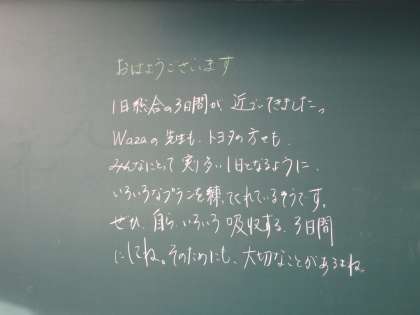 おはようございます
1日総合の3日間が近づいてきましたっ。
Wazaの先生も、トヨタの方々も、
みんなにとって実り多い1日となるように、
いろいろなプランを練ってくれているそうです。
ぜひ、自ら、いろいろ吸収する、3日間
にしてね。そのためにも、大切なことがあるよね。